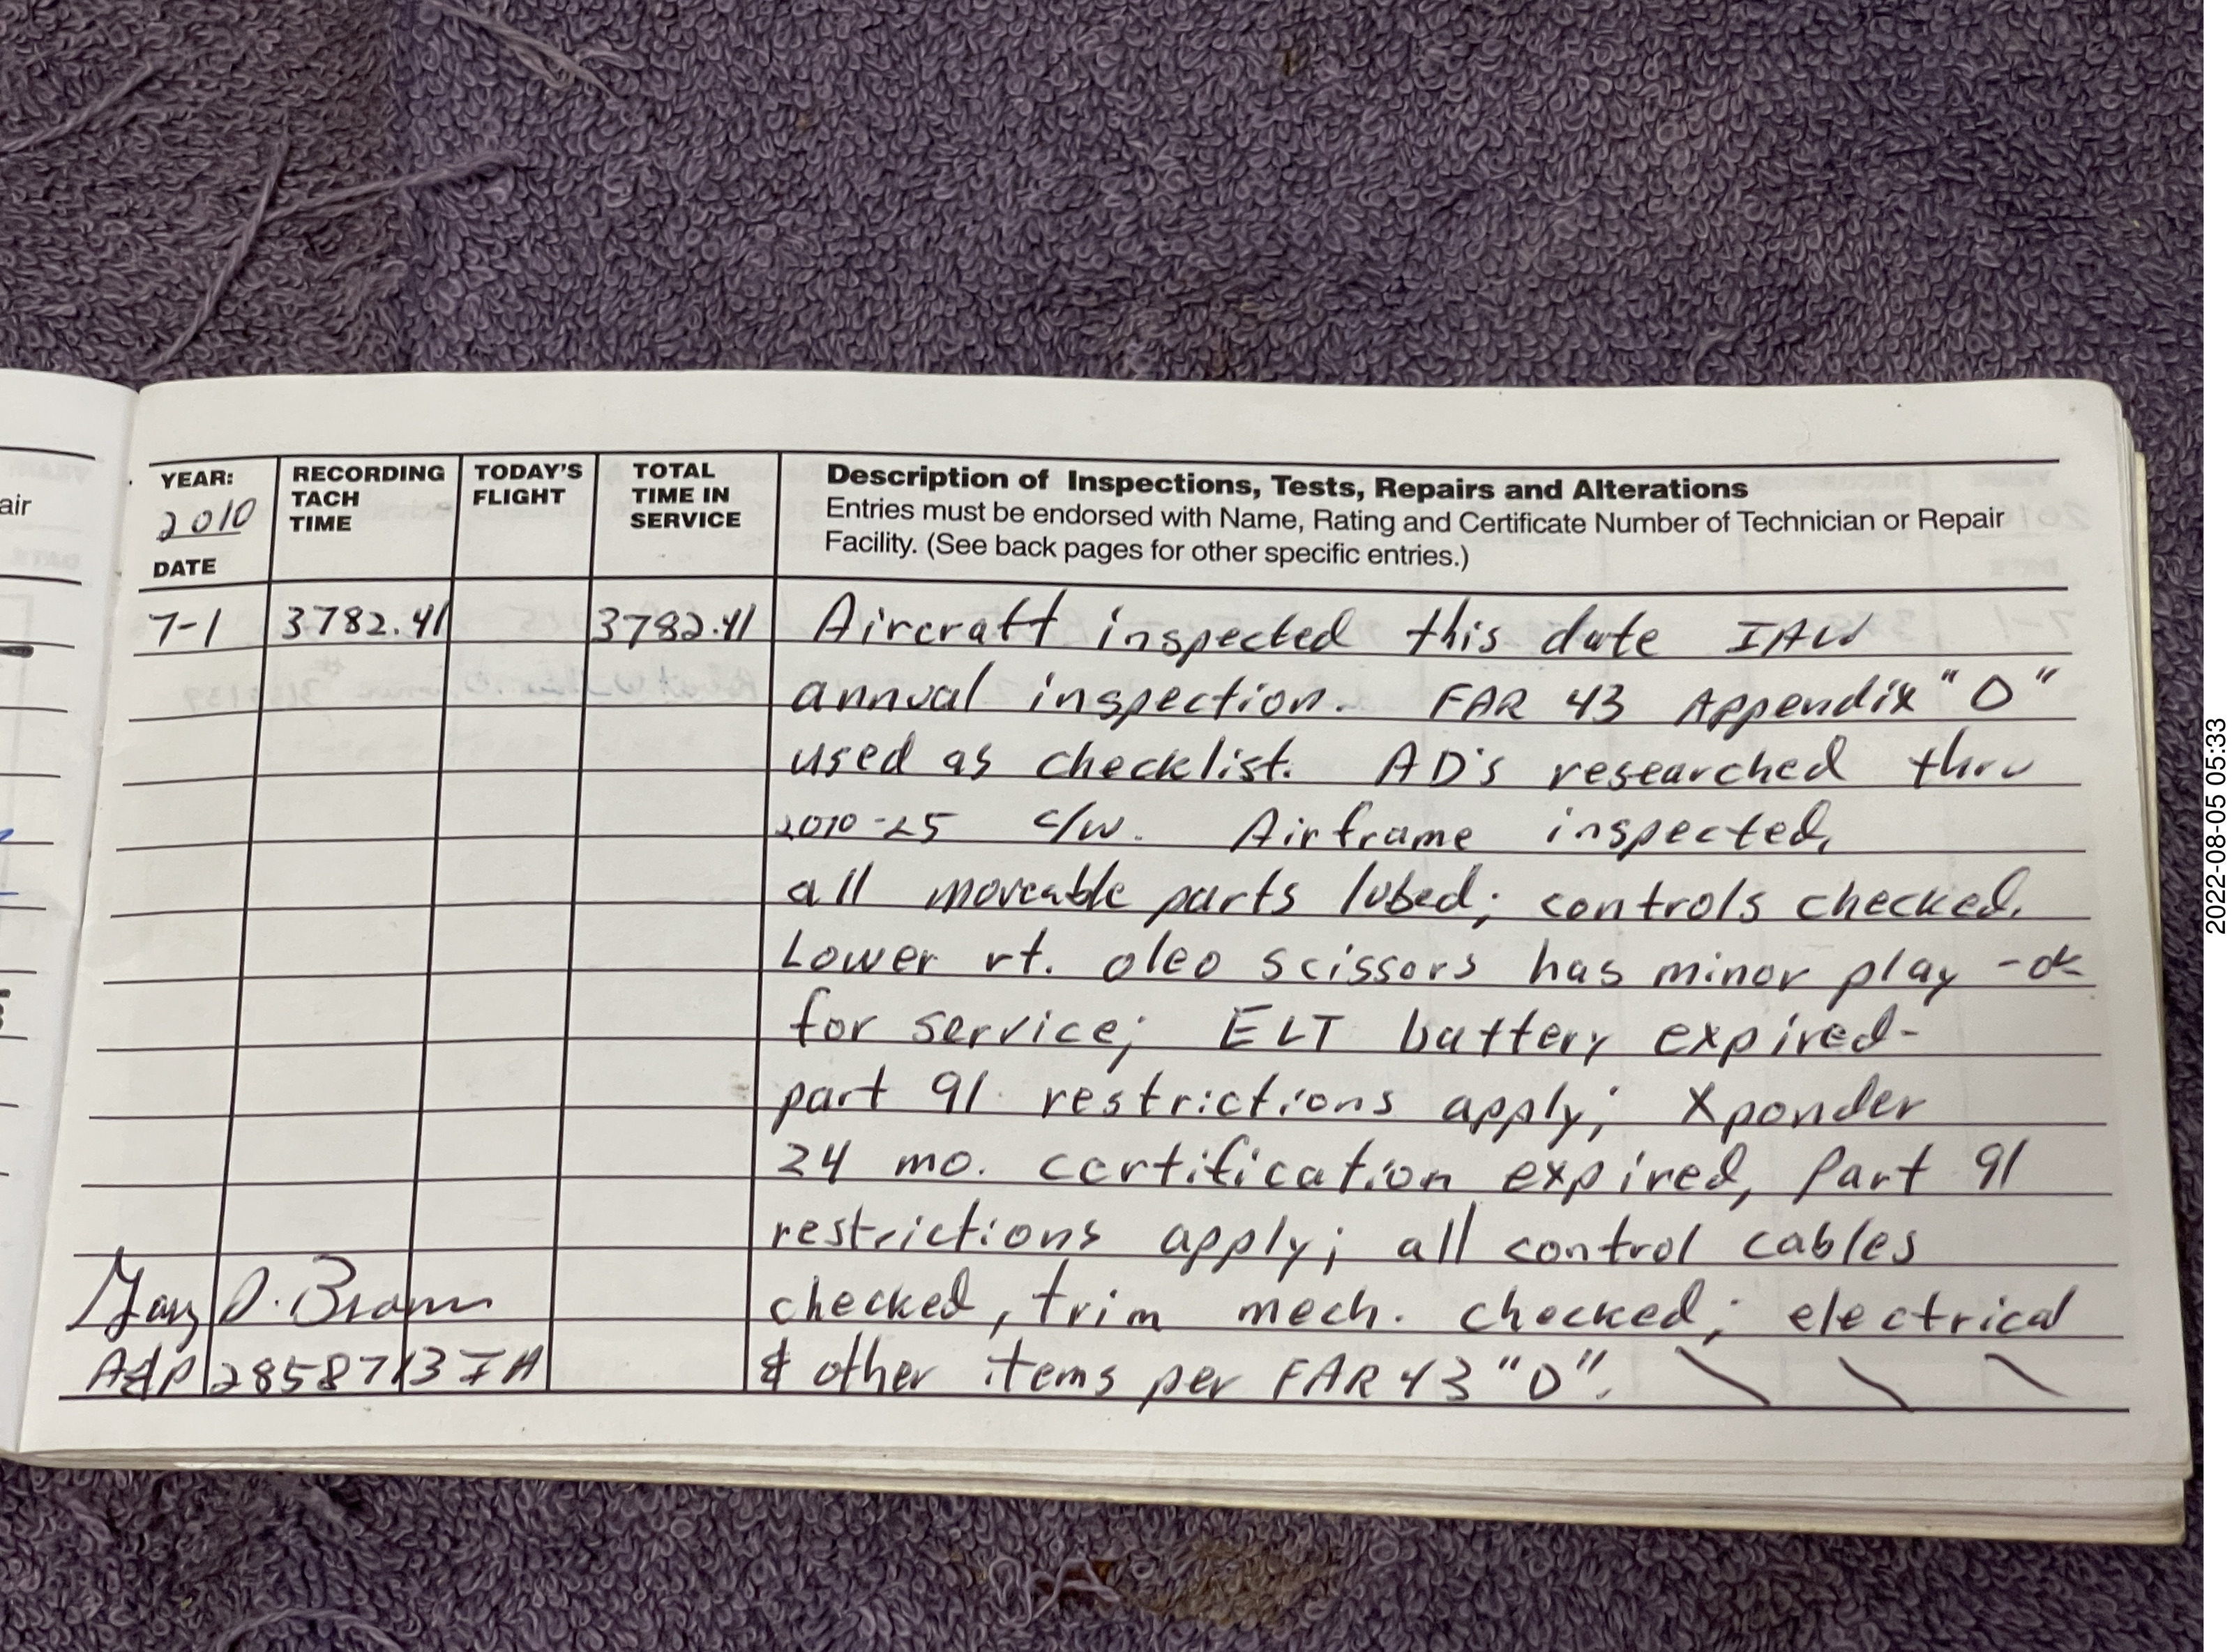 air
YEAR:
2010
DATE
RECORDING
TACH
TIME
TODAY'S
FLIGHT
TOTAL
TIME IN
SERVICE
Description of Inspections, Tests, Repairs and Alterations
Entries must be endorsed with Name, Rating and Certificate Number of Technician or Repair
Facility. (See back pages for other specific entries.)
7-1 3782.41 3782.41 Aircraft inspected this date IAW
annual inspection. FAR 43 Appendix "D"
used as checklist. AD's researched thru
2010-25 c/w. Airframe inspected,
all moveable parts lubed; controls checked.
Lower rt. oleo scissors has minor play - ok
for service; ELT battery expired-
part 91 restrictions apply; Xponder
24 mo. certification expired, Part 91
restrictions apply; all control cables
Gary D. Brown checked, trim mech. checked; electrical
A&P 2858713 IA & other items per FAR 43 "D". \ \ \
2022-08-05 05:33